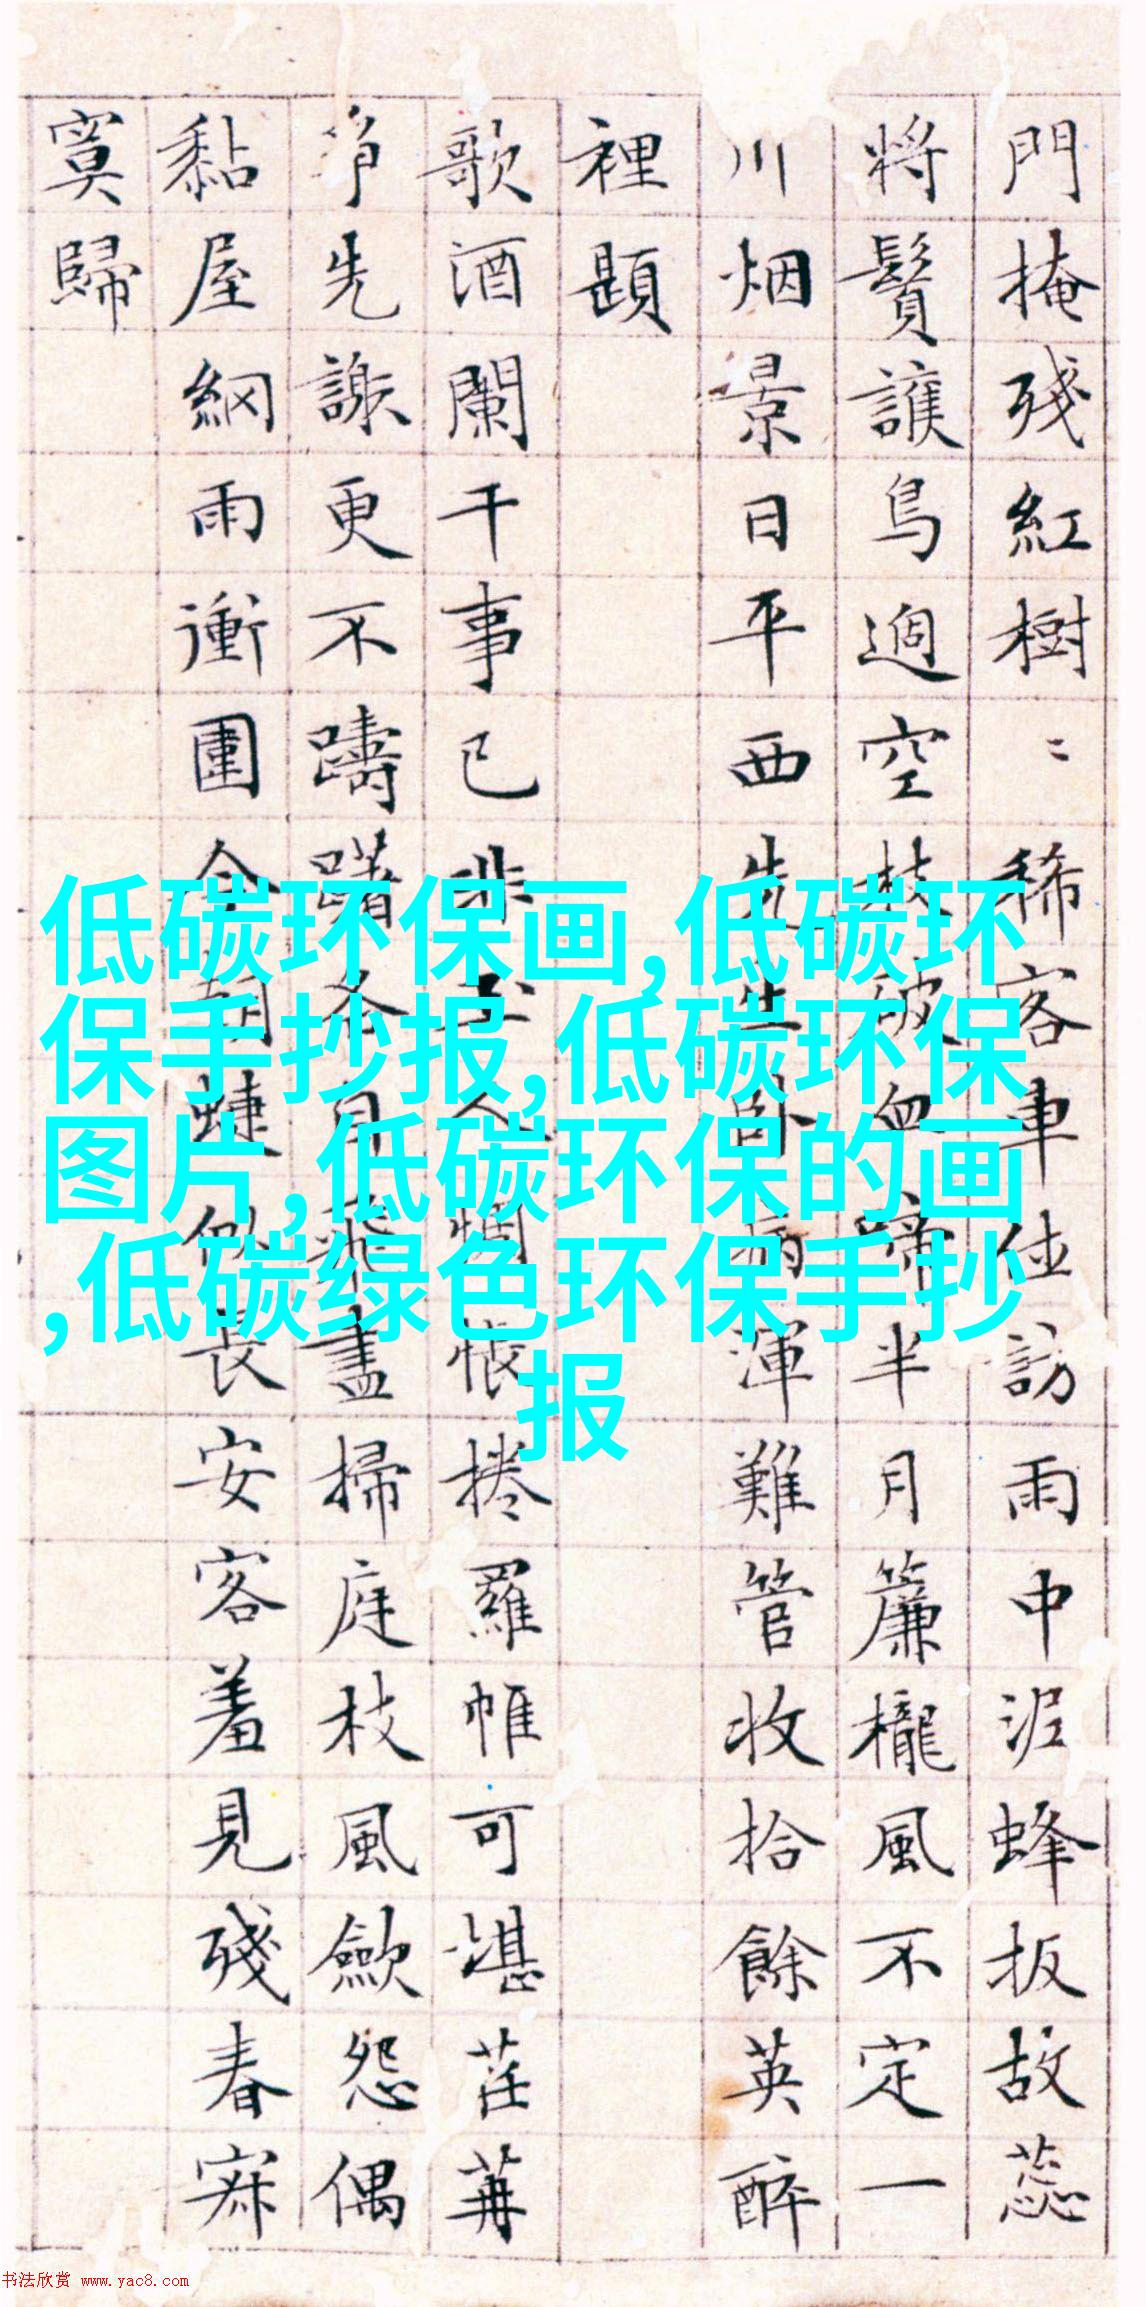 門掩殘紅樹〻稀客車仕訪雨中泥蜂扳故蕊
將鬢護鳥過空枝破血啼半月簾櫳風不定一
川烟景日平西先生卧病渾難管收拾餘英醉
裡題
歌酒闌干事已非玉人惆悵捲羅帷可堪荏苒
爭先謝更不躊躇各自飛盡掃庭枝風歛怨偶
黏屋網雨衝圍今朝蜨似長安客羞見殘春寂
寞歸
低碳环保画,低碳环
保手抄报,低碳环保
图片,低碳环保的画
,低碳绿色环保手抄
报
书法欣赏 www.yac8.com